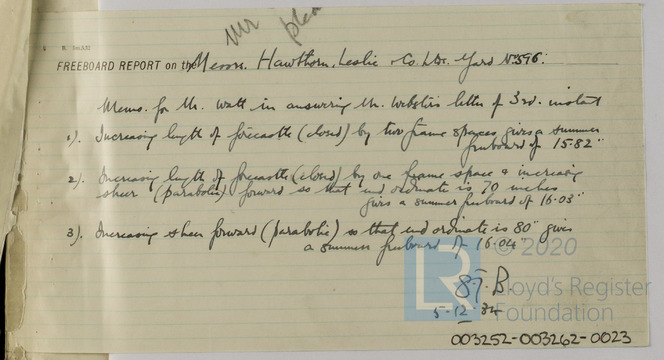 Mr
FREEBOARD REPORT on the Messrs. Hawthorn, Leslie & Co. Ltd. Yard No 596.
Memo. for Mr. Watt in answering Mr. Webster's letter of 3rd. instant
1). Increasing length of forecastle (closed) by two frame spaces gives a summer
freeboard of 15.82"
2). Increasing length of forecastle (closed) by one frame space & increasing
sheer (parabolic) forward so that end ordinate is 70 inches
gives a summer freeboard of 16.03"
3). Increasing sheer forward (parabolic) so that end ordinate is 80" gives
a summer freeboard of 16.04"
© 2020
LR
Lloyd's Register
Foundation
5-12-34
003252-003262-0023